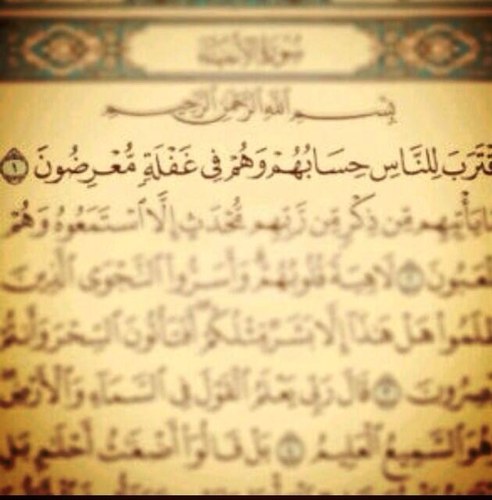 سُورَةُ الأَنبِيَاءِ
بِسْمِ ٱللَّهِ ٱلرَّحْمَٰنِ ٱلرَّحِيمِ
قْتَرَبَ لِلنَّاسِ حِسَابُهُمْ وَهُمْ فِى غَفْلَةٍ مُّعْرِضُونَ ١
مَا يَأْتِيهِم مِّن ذِكْرٍ مِّن رَّبِّهِم مُّحْدَثٍ إِلَّا ٱسْتَمَعُوهُ وَهُمْ
لْعَبُونَ ٢ لَاهِيَةً قُلُوبُهُمْ وَأَسَرُّوا۟ ٱلنَّجْوَى ٱلَّذِينَ
ظَلَمُوا۟ هَلْ هَٰذَآ إِلَّا بَشَرٌ مِّثْلُكُمْ أَفَتَأْتُونَ ٱلسِّحْرَ وَأَنتُمْ
بْصِرُونَ ٣ قَالَ رَبِّى يَعْلَمُ ٱلْقَوْلَ فِى ٱلسَّمَآءِ وَٱلْأَرْضِ
هُوَ ٱلسَّمِيعُ ٱلْعَلِيمُ ٤ بَلْ قَالُوٓا۟ أَضْغَٰثُ أَحْلَٰمٍ بَلِ